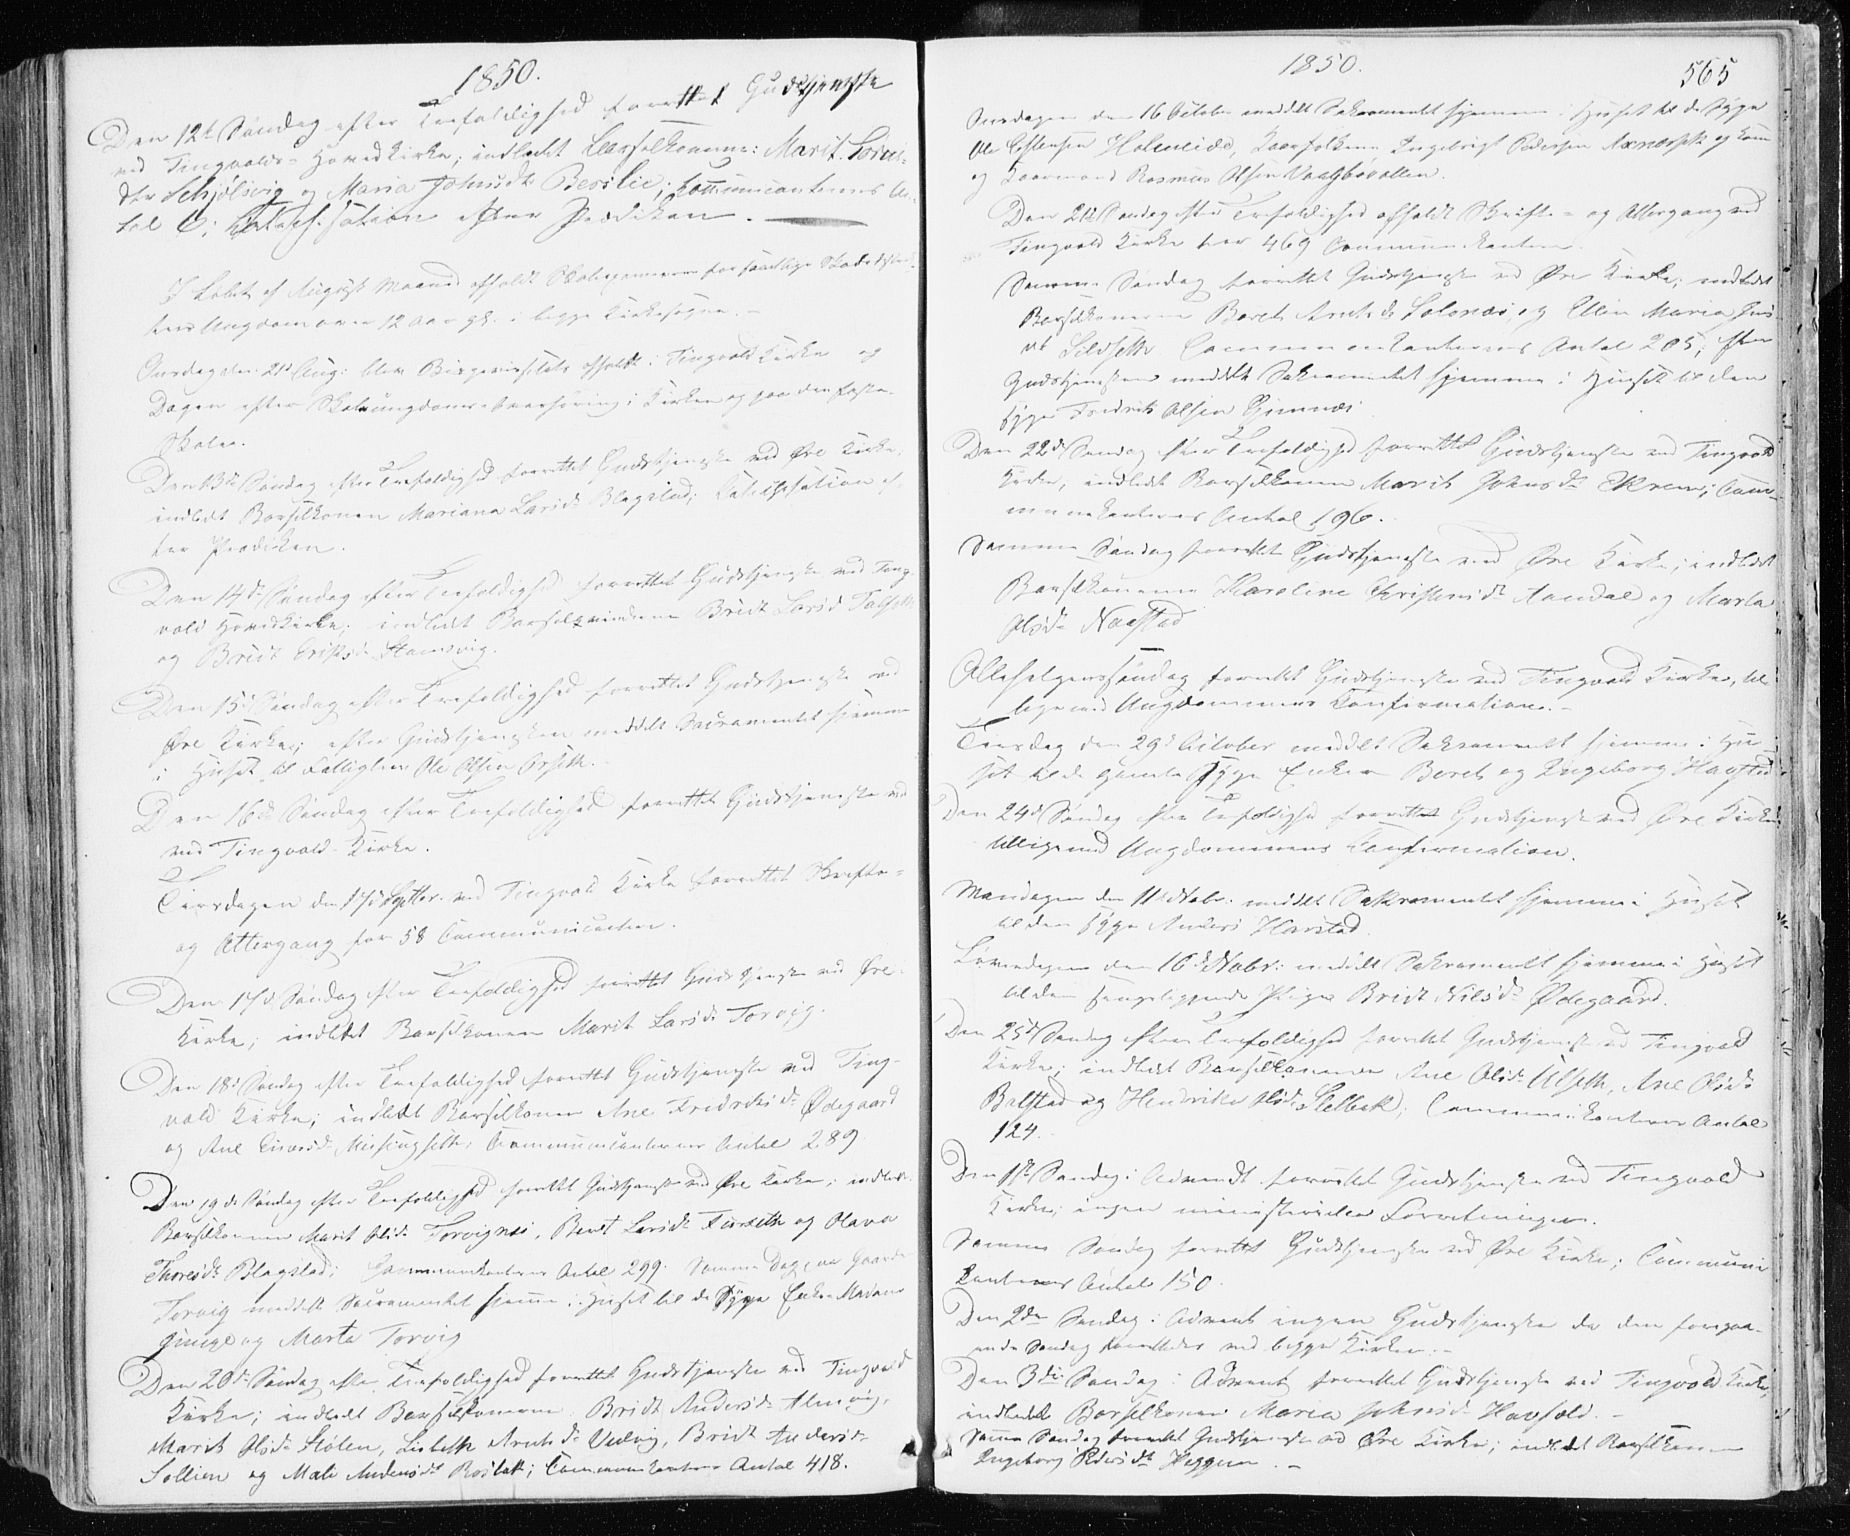 1850.
Den 12te Søndag efter Trefoldighed forrettet Gudstjeneste
ved Tingvolds Hovedkirke; indledt Barselkonerne: Marit
dtr Schjølsvig og Maria Johnsdtr Beslie; Communicanternes An-
tal 6; Catechisation efter Prædiken.
I Løbet af August Maaned afholdt Skoleexamen for samtlige
Ungdom over 12 Aar gl. i begge Kirkesogne.
Onsdagen 21d Aug: blev afholdt i Tingvold Kirke og
Dagen efter Skoleungdoms Overhøring i Kirken og paa den faste
Skole.
Den 13de Søndag efter Trefoldighed forrettet Gudstjeneste ved Øre Kirke;
indledt Barselkonen Mariana Larsdr Blagstad; Catechisation ef-
ter Prædiken.
Den 14de Søndag efter Trefoldighed forrettet Gudstjeneste ved Ting-
vold Hovedkirke; indledt Barselqvinderne Bridt Larsd
og Beridt Eriksdr
Den 15d Søndag efter Trefoldighed forrettet Gudstjeneste ved
Øre Kirke; efter Gudstjenesten meddelt Sacramentet hjemme
i Huset til Fattiglem Ole Olsen Orseth.
Den 16de Søndag efter Trefoldighed forrettet Gudstjeneste ved
ved Tingvold Kirke.
Tirsdagen den 17d Septbr. ved Tingvold Kirke forrettet Skrifte-
og Altergang for 58 Communicanter.
Den 17d Søndag efter Trefoldighed forrettet Gudstjeneste ved Øre
Kirke; indledt Barselkonen Marit Larsdr Torvig.
Den 18d Søndag efter Trefoldighed forrettet Gudstjeneste ved Ting-
vold Kirke; indledt Barselkonen Ane Fredriksdr Ødegaard
og Ane Meisingseth; Communicanternes Antal 289
Den 19de Søndag efter Trefoldighed forrettet Gudstjeneste ved Øre Kirke; indledt
Barselkonerne Marit Olsdr Torvignæs, Larsdr Furseth og Olava
Thoresdr Blagstad; Communicanternes Antal 299. Samme Dag paa Gaarden
Torvig meddelt Sacramentet hjemme i Huset til de Syge Enke
og Marta Torvig
Den 20de Søndag efter Trefoldighed forrettet Gudstjeneste ved Tingvold
Kirke; indledt Barselkonerne Bridt Andersdr Almvig,
Marit Olsdr Stølen, Lisbeth Arntsdr Vedvig, Bridt Andersdr
Sollien og Mali Andersdtr Rosbak; Communicanternes Antal 418.
1850.
565
Onsdagen den 16 October meddelt Sakramentet hjemme i Huset til de Syge
Ole Estensen Holmeide, Ingebrigt Pedersen og Kone
og Kaarmand Rasmus Olsen Vaagbøvollen.
Den 21de Søndag efter Trefoldighed afholdt Skrifte- og Altergang ved
Tingvold Kirke for 469 Communicanter.
Samme Søndag forrettet Gudstjeneste ved Øre Kirke; indledet
Barselkonerne Beret Arntsdr Solsnæs og Ellen Maria
Sildseth Communicanternes Antal 205; efter
Gudstjenesten meddelt Sakramentet hjemme i Huset til den
syge Fredrik Olsen Gimnæs.
Den 22de Søndag efter Trefoldighed forrettet Gudstjeneste ved Tingvold
Kirke, indledt Barselkonen Marit Johnsdr Ekrem; Com-
municanternes Antal 196.
Samme Søndag forrettet Gudstjeneste ved Øre Kirke; indledet
Barselkonerne Karoline Christensdr Aandal og Marta
Olsdr Naastad
Allehelgenssøndag forrettet Gudstjeneste ved Tingvold Kirke, til-
ligemed Ungdommens Confirmation.
Tirsdag den 29d October meddelt Sakramentet hjemme i Hu-
set til de gamle syge Enker Beret og Ingeborg Havstad
Den 24d Søndag efter Trefoldighed forrettet Gudstjeneste ved Øre Kirke
tilligemed Ungdommens Confirmation.
Mandagen den 11te Novbr. meddelt Sakramentet hjemme i Huset
til den syge Anders Harstad.
Løverdagen den 16d Novbr: meddelt Sakramentet hjemme i Huset
til den sengeliggende Pige Bridt Nilsdr Ødegaard.
Den 25d Søndag efter Trefoldighed forrettet Gudstjeneste ved Tingvold
Kirke; indledt Barselkonerne Ane Olsdr Ulseth, Ane Olsdr
Bolstad og Hendrikke Olsdr Stelbak; Communicanternes Antal
124.
Den 1ste Søndag i Advendt forrettet Gudstjeneste ved Tingvold
Kirke; ingen ministerielle Forretninger.
Samme Søndag forrettet Gudstjeneste ved Øre Kirke; Communi
canternes Antal 150.
Den 2den Søndag i Advent ingen Gudstjeneste da den foregaa-
ende Søndag forrettedes ved begge Kirker.
Den 3die Søndag i Advent forrettet Gudstjeneste ved Tingvold Kirke,
indledet Barselkonen Maria Johnsdr Havsold.
Samme Søndag forrettet Gudstjeneste ved Øre Kirke; indledet Barselkonen
Ingeborg Pedersdr Heggem.